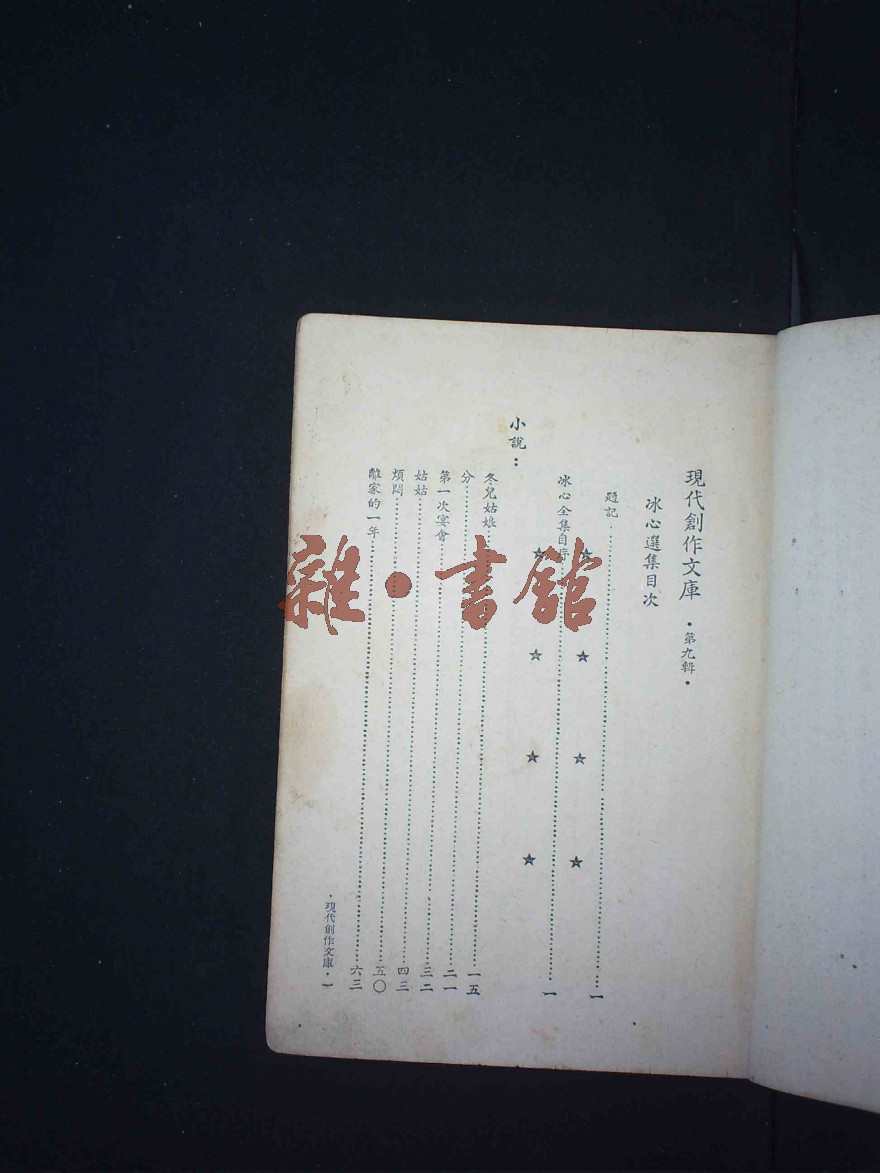 現代創作文庫 •第九輯•
冰心選集目次
題記……一
冰心全集自序……一
小說：
冬兒姑娘……一五
分……二一
第一次宴會……三二
姑姑……四三
煩悶……五〇
離家的一年……六三
•現代創作文庫•一
雜•書館